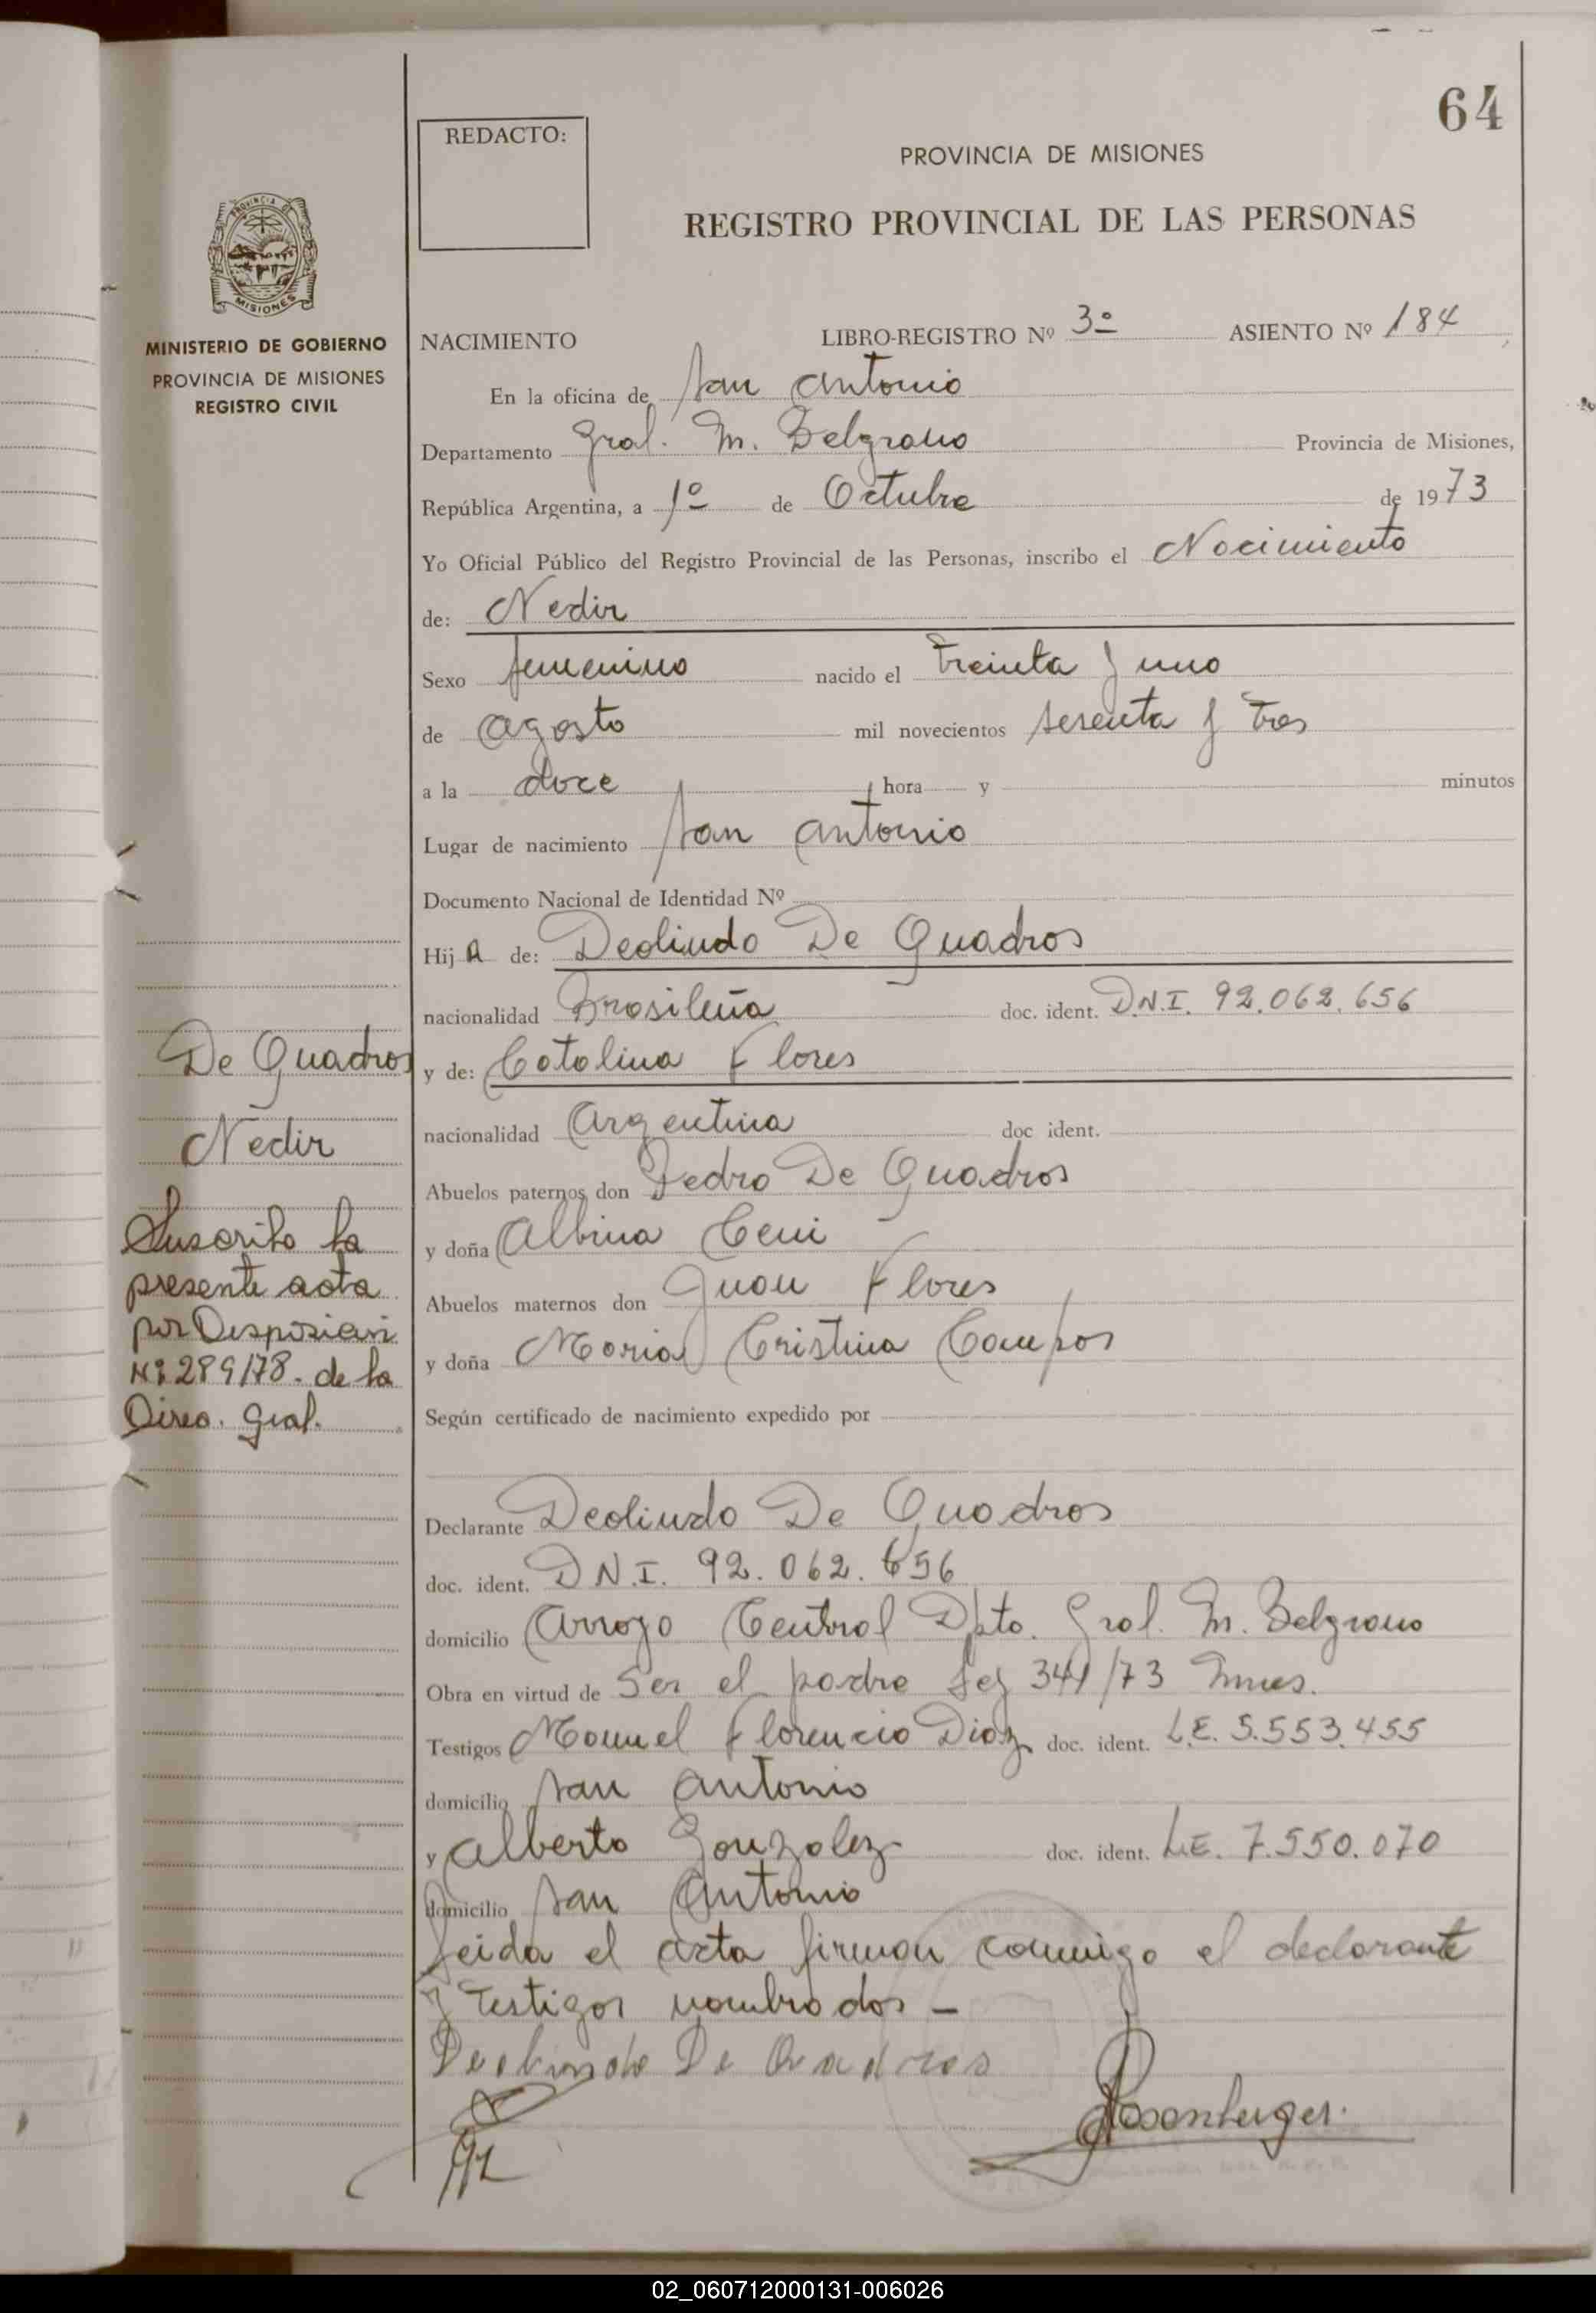 64
REDACTO:
PROVINCIA DE MISIONES
REGISTRO PROVINCIAL DE LAS PERSONAS
PROVINCIA DE
MISIONES
MINISTERIO DE GOBIERNO
PROVINCIA DE MISIONES
REGISTRO CIVIL
NACIMIENTO LIBRO-REGISTRO Nº 3º ASIENTO Nº 184
En la oficina de San Antonio
Departamento Gral. M. Belgrano Provincia de Misiones,
República Argentina, a 1º de Octubre de 1973
Yo Oficial Público del Registro Provincial de las Personas, inscribo el Nacimiento
de: Nedir
Sexo femenino nacido el treinta y uno
de agosto mil novecientos setenta y tres
a la doce hora y minutos
Lugar de nacimiento San Antonio
Documento Nacional de Identidad Nº
Hij A de: Deolindo De Quadros
nacionalidad Brasileña doc. ident. D.N.I. 92.062.656
y de: Catalina Flores
nacionalidad Argentina doc ident.
Abuelos paternos don Pedro De Quadros
y doña Albina Ceni
Abuelos maternos don Juan Flores
y doña Maria Cristina Campos
Según certificado de nacimiento expedido por
De Quadros
Nedir
Suscrito la
presente acta
por Disposicion
Nº 289/78. de la
Direc. Gral.
Declarante Deolindo De Quadros
doc. ident. D N.I. 92.062.656
domicilio Arroyo Central Dpto. Gral. M. Belgrano
Obra en virtud de Ser el padre Ley 341/73
Testigos Manuel Florencio Diaz doc. ident. L.E. 5.553.455
domicilio San Antonio
y Alberto Gonzalez doc. ident. L.E. 7.550.070
domicilio San Antonio
Leida el acta firman conmigo el declarante
y testigos nombrados -
Deolindo De Quadros
Rosenberger.
02_060712000131-006026